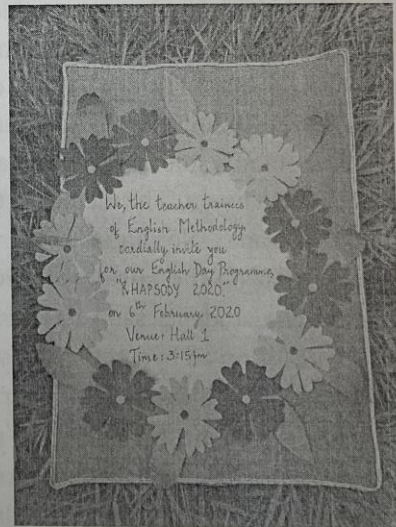 We, the teacher trainees
of English Methodology
cordially invite you
on our English Day Programme,
"RHAPSODY 2020"
on 6th February 2020
Venue: Hall 1
Time: 3:15pm